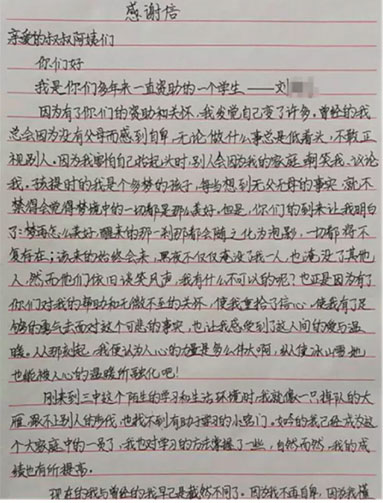 感谢信
亲爱的叔叔阿姨们
你们好
我是你们多年来一直资助的一个学生——刘
因为有了你们的资助和关怀,我发觉自己变了许多。曾经的我
总会因为没有父母而感到自卑,无论做什么事总是低着头,不敢正
视别人。因为我害怕自己抬起头时,别人会因我的家庭嘲笑我、议论
我。孩提时的我是个多梦的孩子,每当想到无父无母的事实,就不
禁得会觉得梦境中的一切都是那么美好。但是,你们的到来让我明白
了:梦再怎么美好,醒来的那一刹那都会随之化为泡影,一切都将不
复存在;该来的始终会来,黑夜不仅仅淹没了我一人,也淹没了其他
人,然而他们依旧谈笑风声,我有什么不可以的呢?也正是因为有了
你们对我的帮助和无微不至的关怀,使我重拾了信心,使我有了足
够的勇气去面对这个可悲的事实,也让我感受到了这人间的爱与温
暖。从那刻起,我便认为人心的力量是多么伟大啊,纵使冰山雪地
也能被人心的温暖所融化吧!
刚来到三中这个陌生的学习和生活环境时,我就像一只掉队的大
雁,跟不上别人的步伐,也找不到有助于学习的小窍门。如今的我已经成为这
个大家庭中的一员了,我也对学习的方法掌握了一些,自然而然,我的成
绩也有所提高。
现在的我与曾经的我早已是截然不同了。因为我不再自卑,因为我懂